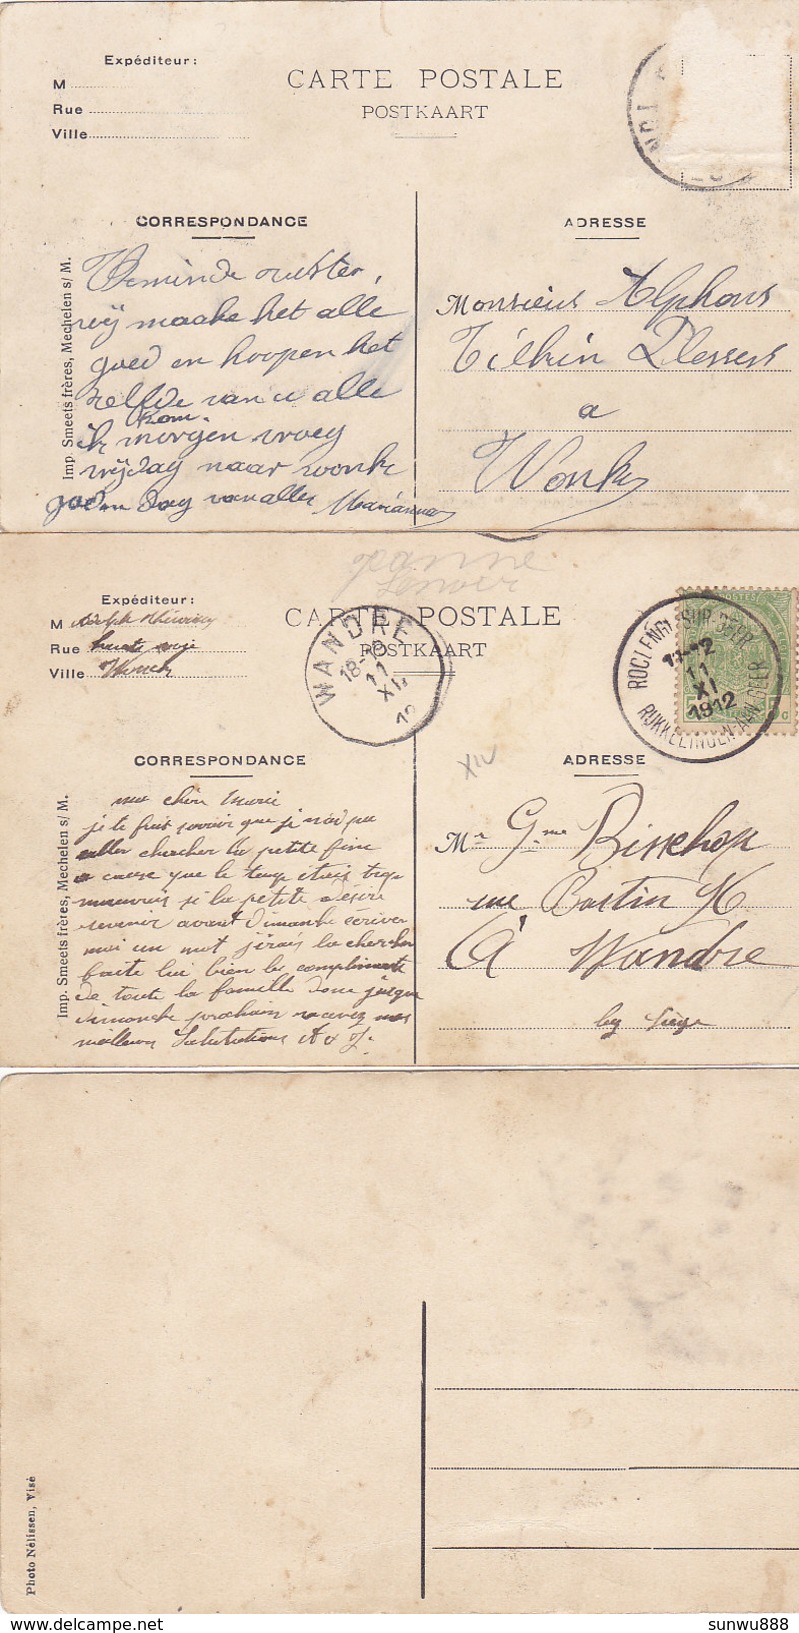 Expéditeur :
CARTE POSTALE
M
Rue
POSTKAART
Ville
CORRESPONDANCE
ADRESSE
Imp. Smeets frères, Mechelen s/ M.
Beminde zuster,
wij maake het alle
goed en hoopen het
zelfde van u alle
kom
ik morgen vroeg
vrijdag naar wonk
goeden dag van alle Marianna
Monsieur Alphons
Tilkin Plessers
a
Wonk
panne
Lenoir
Expéditeur :
CARTE POSTALE
M Adolph
Rue haute
POSTKAART
Ville Wonck
WANDRE
18-19
11
XI
ROCLENGE-SUR-GEER
11-12
11
XI
1912
RIJKKELINGEN-AAN-GEER
POSTES
XIV
CORRESPONDANCE
ADRESSE
Imp. Smeets frères, Mechelen s/ M.
ma chère Marie
je te fait savoir que je n'ai pu
aller chercher la petite fine
a cause que le temp etais trop
mauvais si la petite désire
revenir avant dimanche écriver
moi un mot j'irais la chercher
faite lui bien les compliments
de toute la famille donc jusque
dimanche prochain recevez mes
meilleurs Salutations A x J.
Mr Gme Bisschop
rue Bastin
A Wandre
lez Liége
Photo Nélissen, Visé
sunwu888